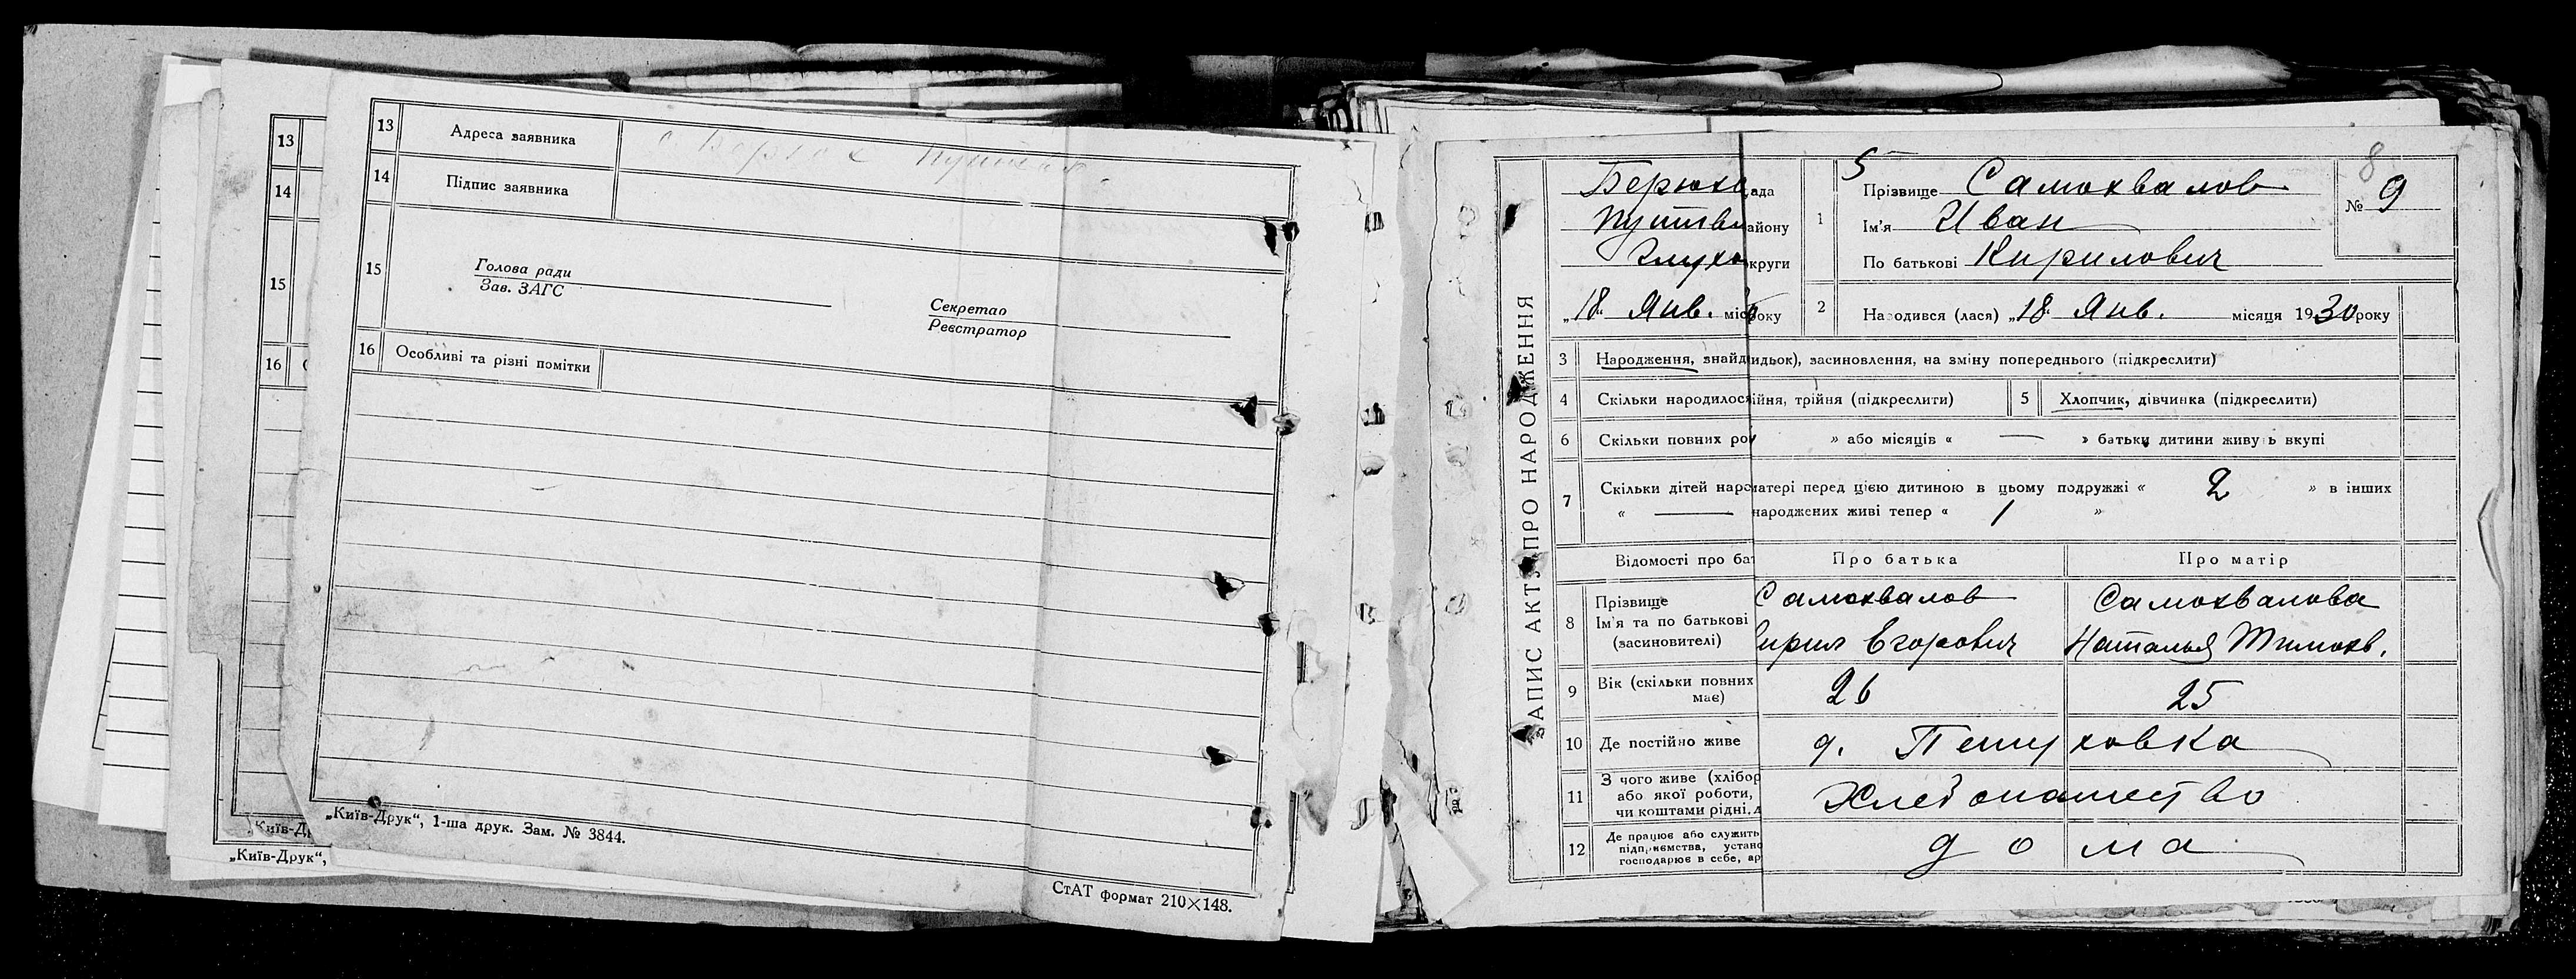 13
14
15
16
„Київ-Др
„Київ-Друк“,
13 Адреса заявника
14 Підпис заявника
15 Голова ради
Зав. ЗАГС
Секретар
Реєстратор
16 Особливі та різні помітки
„Київ-Друк“, 1-ша друк. Зам. № 3844.
СтАТ формат 210×148.
ЗАПИС АКТУ ПРО НАРОДЖЕННЯ
Берюх ада
Путив айону
Глухо круги
„18“ Янв. міс оку
5
1 Прізвище Самохвалов
Ім'я Иван
По батькові Кирилович
8
№ 9
2 Народився (лася) „18“ Янв. місяця 1930 року
3 Народження, знайд идьок), засиновлення, на зміну попереднього (підкреслити)
4 Скільки народилося ійня, трійня (підкреслити)
5 Хлопчик, дівчинка (підкреслити)
6 Скільки повних ро » або місяців « — » батьки дитини живуть вкупі
7 Скільки дітей наро матері перед цією дитиною в цьому подружжі « 2 » в інших
« — народжених живі тепер « 1 »
Відомості про бат Про батька Про матір
8 Прізвище
Ім'я та по батькові
(засиновителі)
Самохвалов
ирил Егорович
Самохвалова
Наталья Тимохв.
9 Вік (скільки повних
має)
26 25
10 Де постійно живе д. Петуховка
11 З чого живе (хлібор
або якої роботи,
чи коштами рідні, д
Хлебопашество
12 Де працює або служить
підприємства, устано
господарює в себе, ар
дома